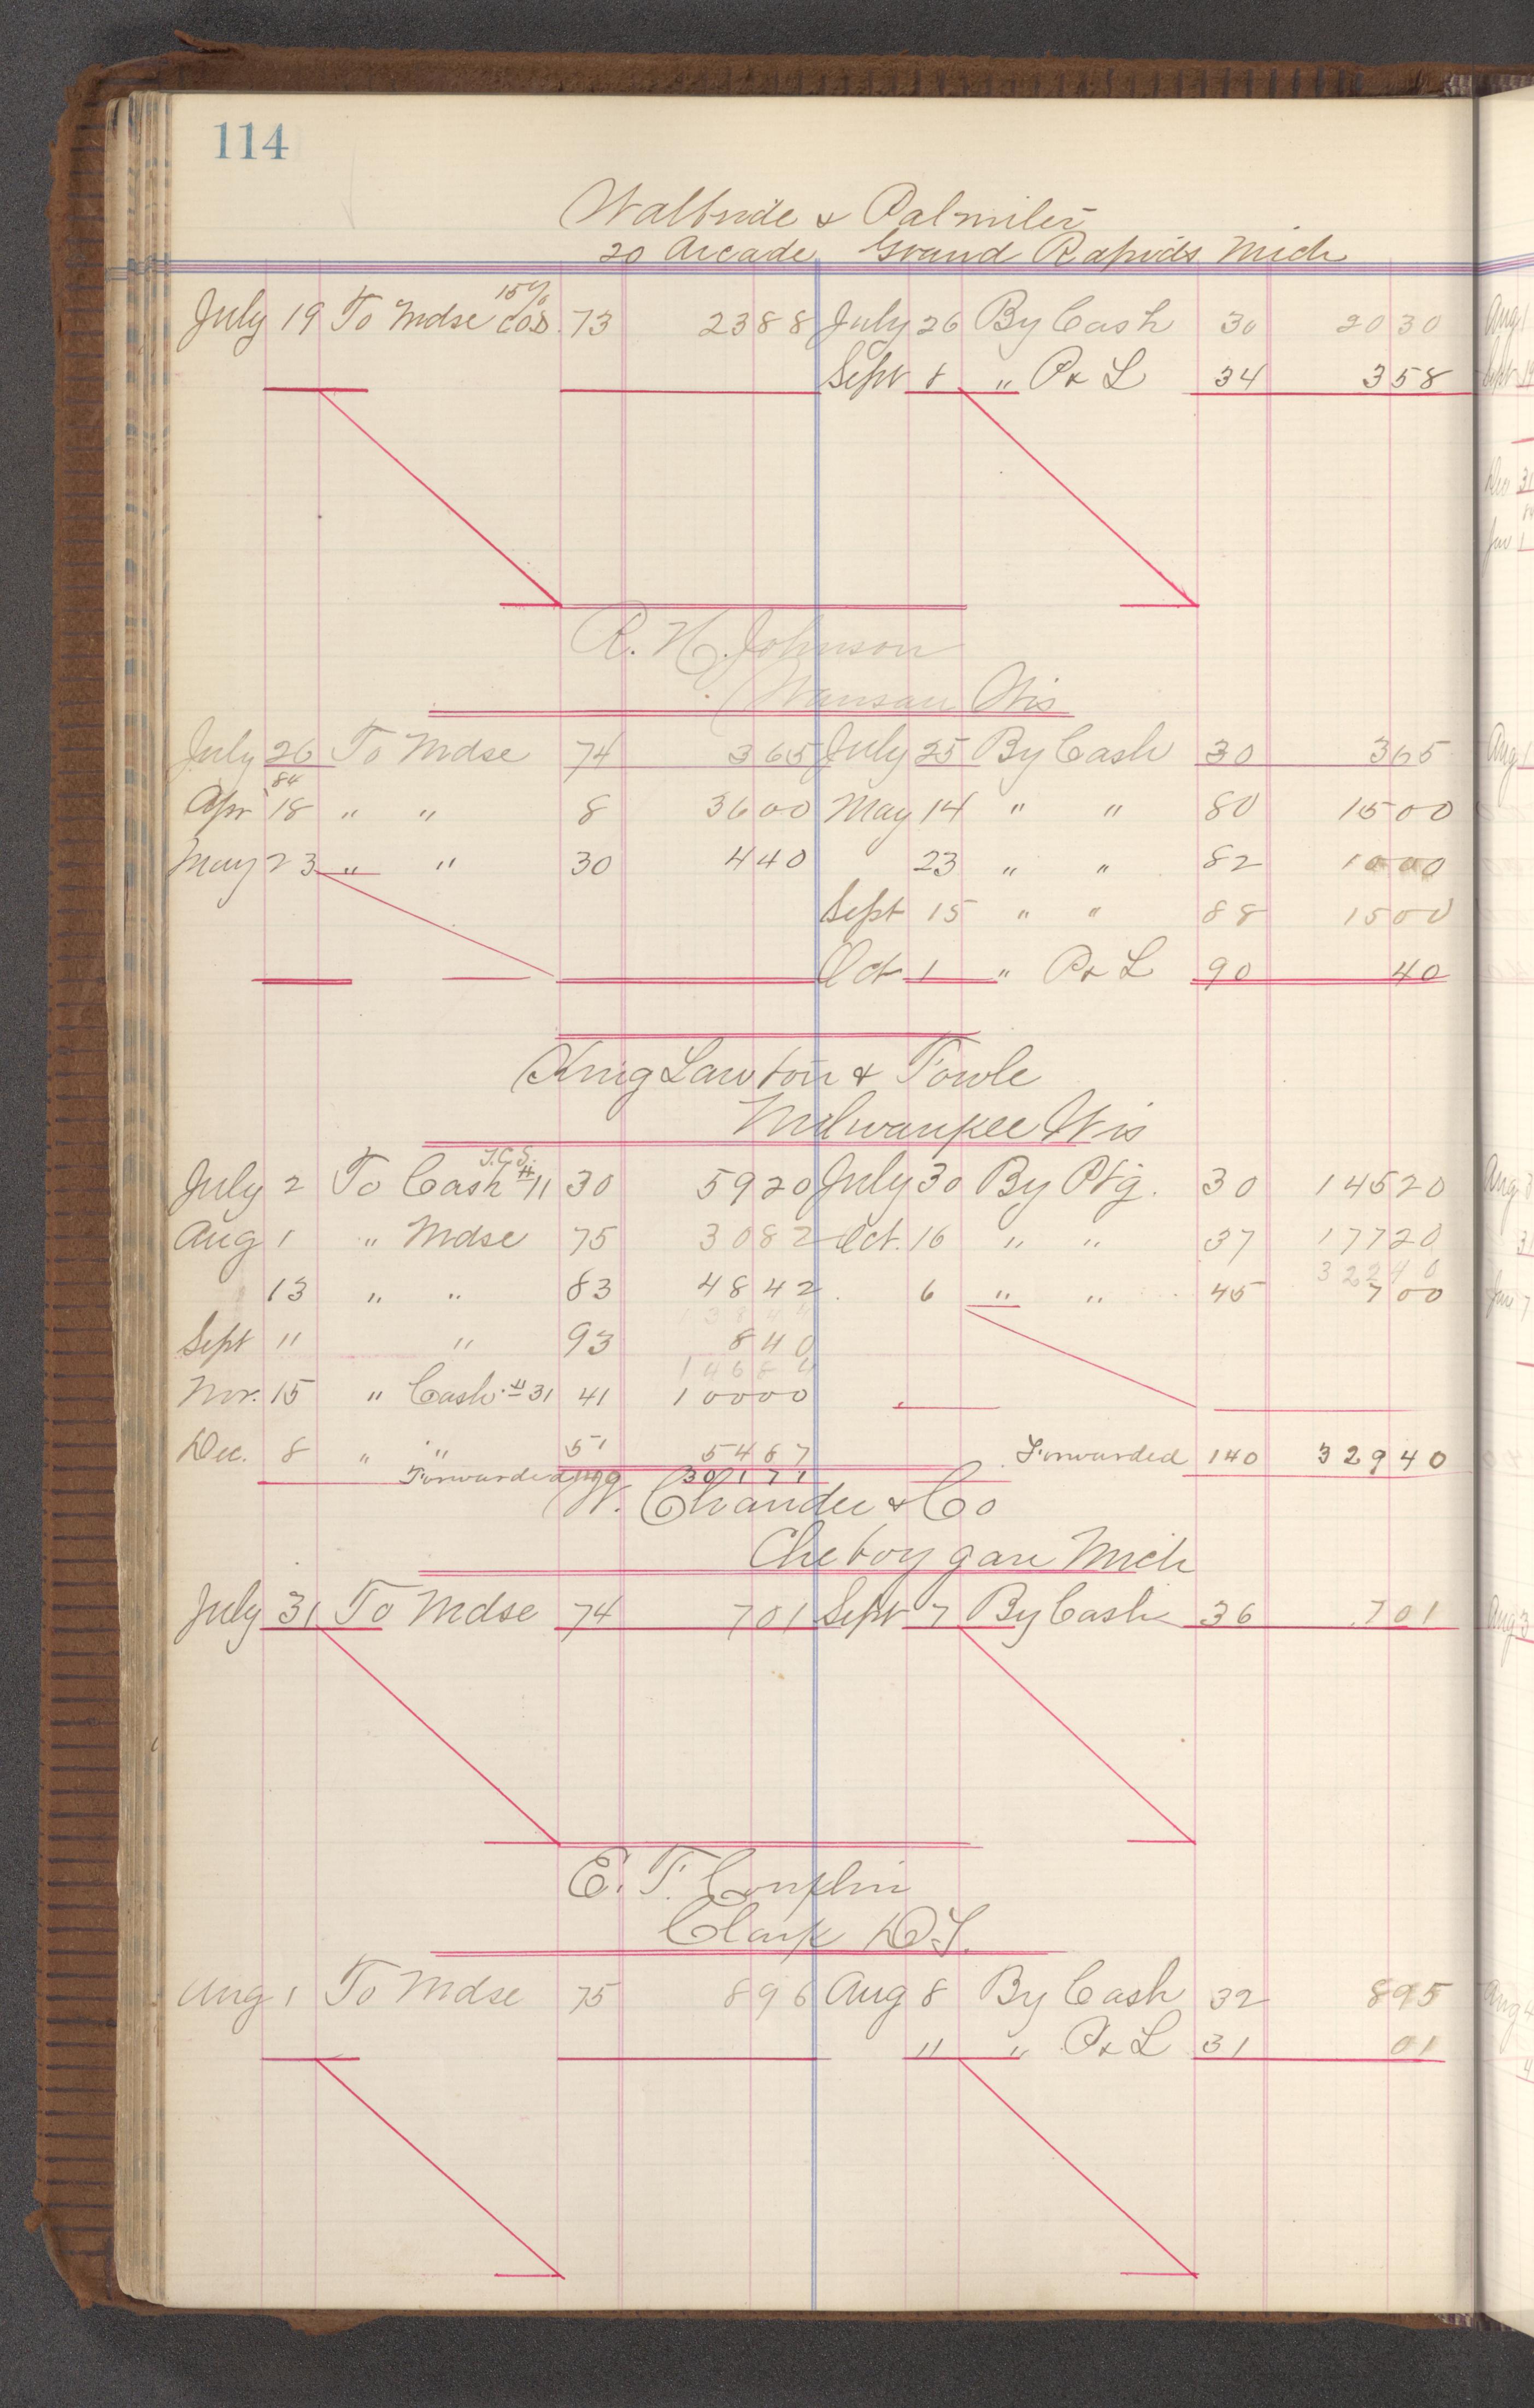 114
Walbride & Palmiter
20 Arcade Grand Rapids Mich
July 19 To Mdse 15% COD. 73 23 88 July 26 By Cash 30 20 30
Sept 8 " P & L 34 3 58
R. H. Johnson
Wausau Wis
July 26 To Mdse 74 3 65 July 25 By Cash 30 3 65
84
Apr 18 " " 8 36 00 May 14 " " 80 15 00
May 23 " " 30 4 40 23 " " 82 10 00
Sept 15 " " 88 15 00
Oct 1 " P & L 90 40
King Lawton & Fowle
Milwaukee Wis
July 2 To Cash J.C.S. #11 30 59 20 July 30 By Ptg. 30 145 20
Aug 1 " Mdse 75 30 82 Oct. 16 " " 37 177 20
322 40
13 " " 83 48 42 6 " " 45 7 00
138 44
Sept 11 " 93 8 40
146 84
Nov. 15 " Cash #31 41 100 00
Dec. 8 " " 51 54 87 Forwarded 140 329 40
Forwarded 301 71
W. Chandler & Co
Cheboygan Mich
July 31 To Mdse 74 7 01 Sept 7 By Cash 36 7 01
E. T. Conklin
Clark D T.
Aug 1 To Mdse 75 8 96 Aug 8 By Cash 32 8 95
" " P & L 31 01